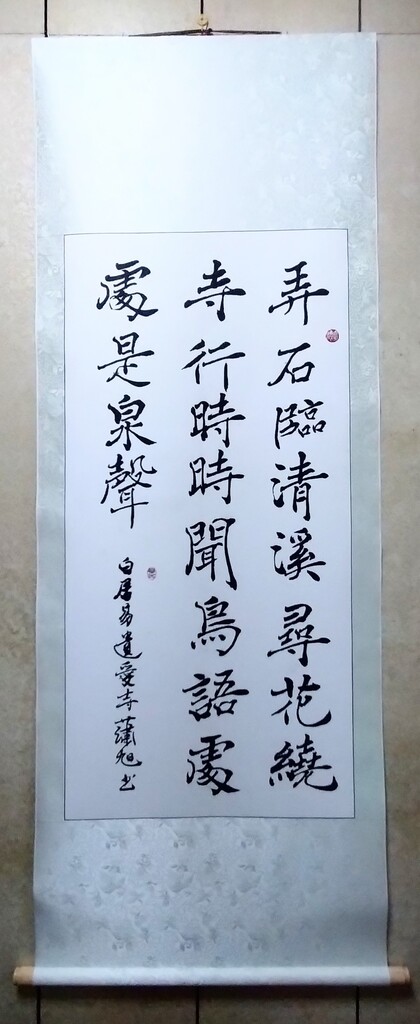 弄石臨清溪尋花繞
寺行時時聞鳥語處
處是泉聲
白居易遺愛寺蕭旭书